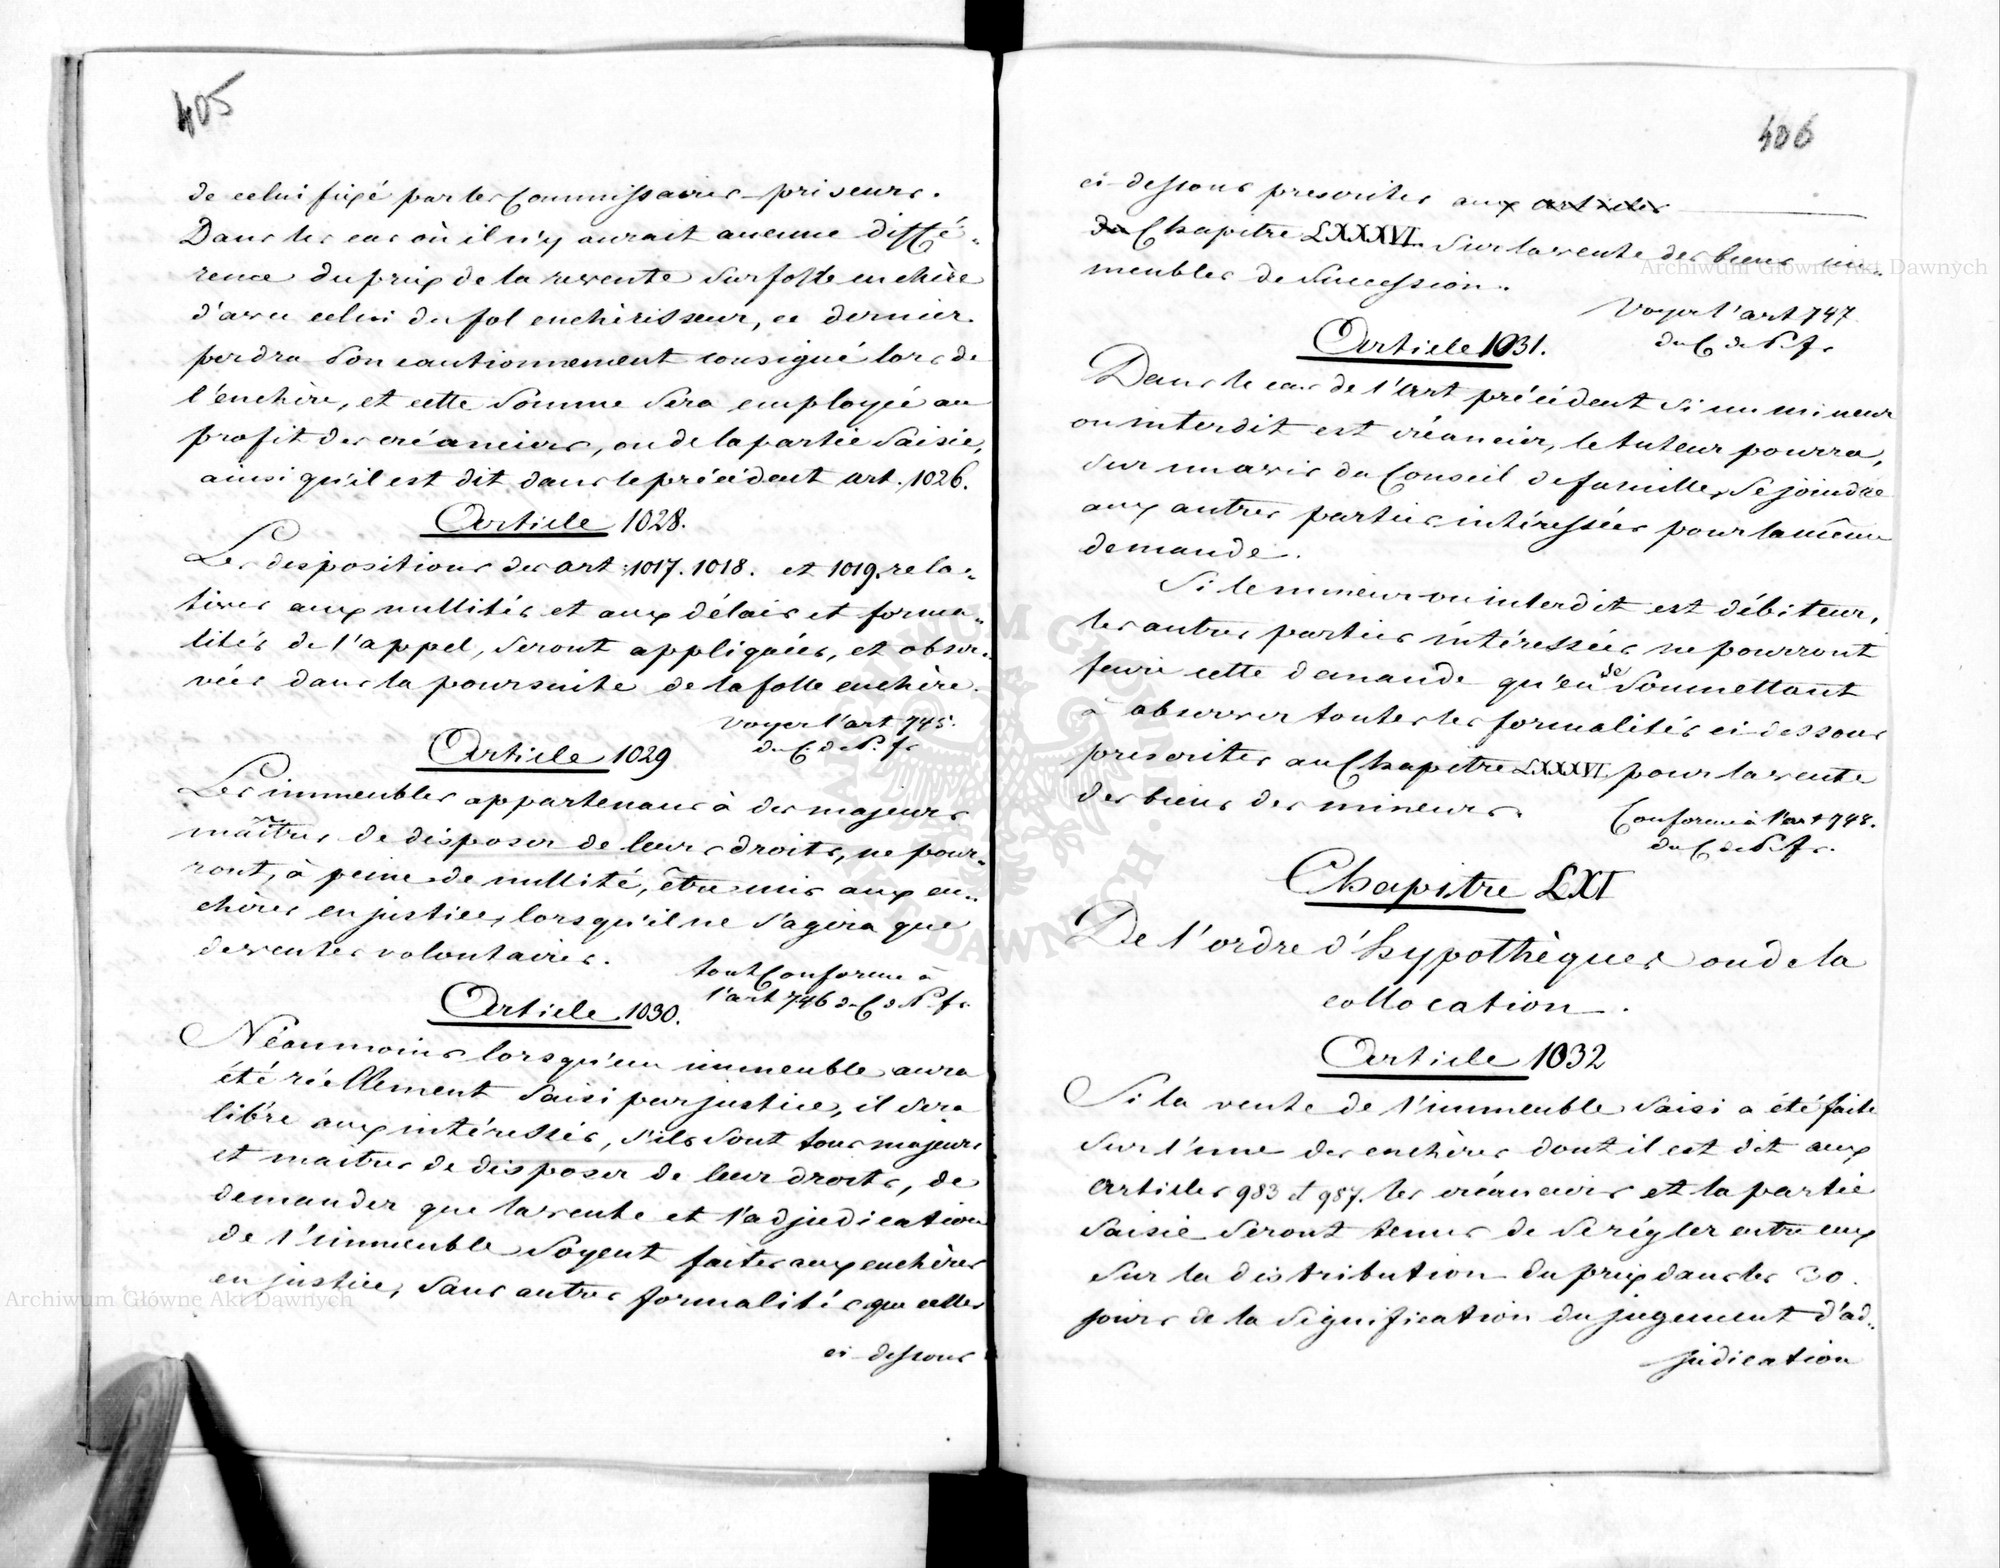 405
de celui fixé par les Commissaires-priseurs.
Dans les cas où il n'y aurait aucune diffé-
rence du prix de la revente sur folle enchère
d'avec celui du fol enchérisseur, ce dernier
perdra son cautionnement consigné lors de
l'enchère, et cette somme sera employée au
profit des créanciers, ou de la partie saisie,
ainsi qu'il est dit dans le précédent art. 1026.
Article 1028.
Les dispositions des art. 1017. 1018. et 1019. rela-
tives aux nullités et aux délais et forma-
lités de l'appel, seront appliquées, et obser-
vées dans la poursuite de la folle enchère.
Voyez l'art 745.
du C. de P. fr
Article 1029
Les immeubles appartenans à des majeurs
maîtres de disposer de leurs droits, ne pour-
ront, à peine de nullité, être mis aux en-
chères en justice, lorsqu'il ne s'agira que
de ventes volontaires.
tout Conforme à
l'art 746 du C de P. fr
Article 1030.
Néanmoins lorsqu'un immeuble aura
été réellement saisi par justice, il sera
libre aux intéressés, s'ils sont tous majeurs
et maitres de disposer de leur droits, de
demander que la vente et l'adjudication
de l'immeuble soyent faites aux enchères
en justice, sans autres formalités que celles
ci-dessous
406
ci-dessous prescrites aux articles
du Chapitre LXXXVI. sur la vente des biens im-
meubles de succession.
Voyez l'art 747
du C de P. fr
Article 1031.
Dans le cas de l'art précédent si un mineur
ou interdit est créancier, le tuteur pourra,
sur un avis du Conseil de famille, se joindre
aux autres parties intéressées pour la même
demande.
Si le mineur ou interdit est débiteur,
les autres parties intéressées ne pourront
faire cette demande qu'en se soumettant
à observer toutes les formalités ci-dessous
prescrites au Chapitre LXXXVI pour la vente
des biens des mineurs.
Conforme à l'art 748.
du C de P. fr.
Chapitre LXI
De l'ordre d'hypothèques ou de la
collocation.
Article 1032
Si la vente de l'immeuble saisi a été faite
sur l'une des enchères dont il est dit aux
articles 983 et 987. les créanciers et la partie
saisie seront tenus de se régler entre eux
sur la distribution du prix dans les 30.
jours de la signification du jugement d'ad-
judication
Archiwum Główne Akt Dawnych
Archiwum Główne Akt Dawnych
ARCHIWUM GŁÓWNE AKT DAWNYCH